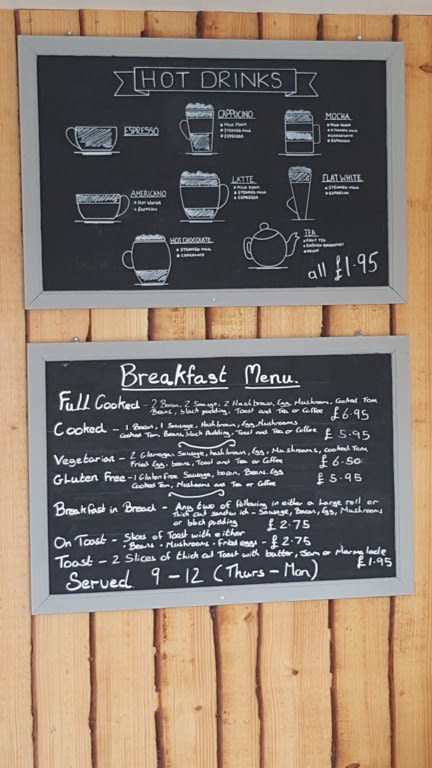 HOT DRINKS
ESPRESSO
CAPPUCINO
• MILK FOAM
• STEAMED MILK
• ESPRESSO
MOCHA
• MILK FOAM
• STEAMED MILK
• CHOCOLATE
• ESPRESSO
AMERICANO
• HOT WATER
• ESPRESSO
LATTE
• MILK FOAM
• STEAMED MILK
• ESPRESSO
FLAT WHITE
• STEAMED MILK
• ESPRESSO
HOT CHOCOLATE
• STEAMED MILK
• CHOCOLATE
TEA
• FRUIT TEA
• ENGLISH BREAKFAST
all £1.95
Breakfast Menu.
Full Cooked - 2 Bacon, 2 Sausage, 2 Hash brown, Egg, Mushroom, Cooked Tom
Beans, black pudding, Toast and Tea or Coffee £6.95
Cooked - 1 Bacon, 1 Sausage, Hash brown, Egg, Mushrooms
Cooked Tom, Beans, black Pudding, Toast and Tea or Coffee £5.95
Vegetarian - 2 Glamorgan Sausage, hash brown, Egg, Mushrooms, cooked Tom
Fried Egg, beans, Toast and Tea or Coffee £6.50
Gluten Free - 1 Gluten free Sausage, bacon, Beans, Egg
Cooked Tom, Mushrooms and Tea or Coffee £5.95
Breakfast in Bread - Any two of following in either a Large roll or
thick cut sandwich - Sausage, Bacon, Egg, Mushrooms
or black pudding £2.75
On Toast - Slices of Toast with either
• Beans • Mushrooms • Fried eggs - £2.75
Toast - 2 Slices of thick cut Toast with butter, Jam or Marmalade
£1.95
Served 9-12 (Thurs-Mon)